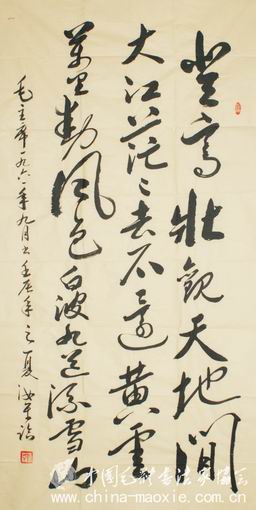 登高壮觀天地間
大江茫茫去不還黄雲
萬里動風色白波九道流雪山
毛主席一九六一年九月书壬辰年之夏
中国毛体书法家协会
www.china-maoxie.com.cn